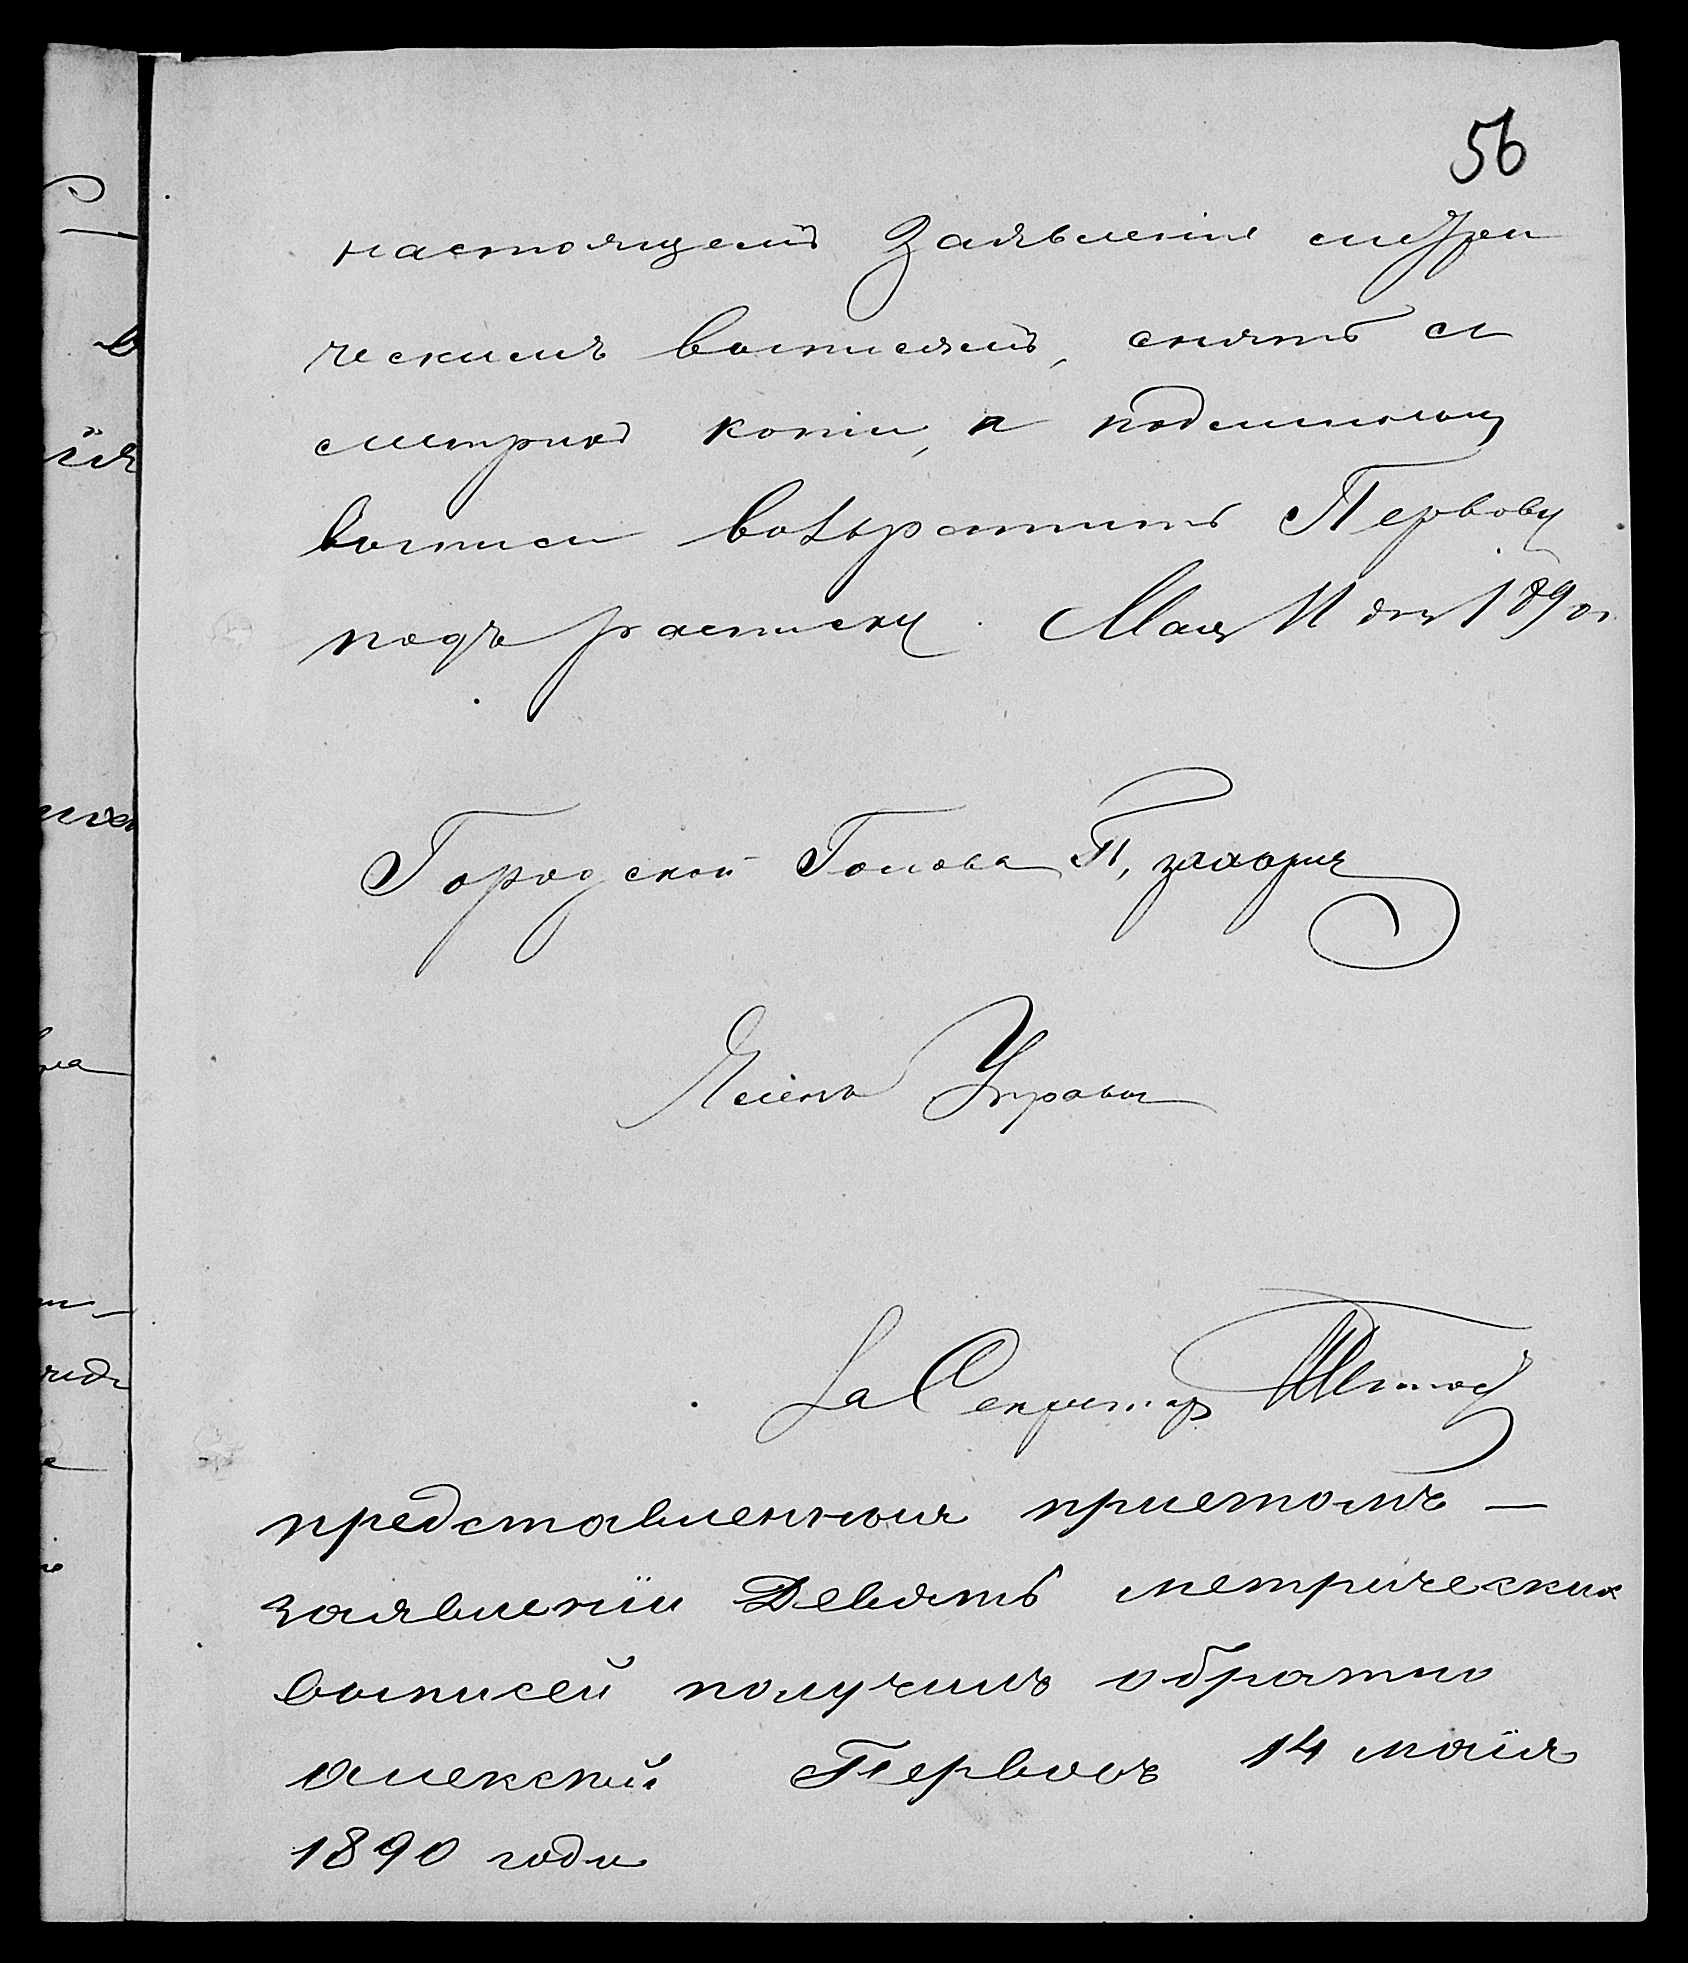 56
настоящемъ Заявленіи метри
ческимъ выписямъ, снять съ
метрикъ копіи, а подлинныя
выписи возвратить Первову
подъ расписку. Мая 11 дня 1890 г.
Городской Голова П.
Членъ Управы
За Секретаря
представленныя приетомъ —
заявленіи Девять метрическихъ
выписей получилъ обратно
алексѣй Первовъ 14 маія
1890 года